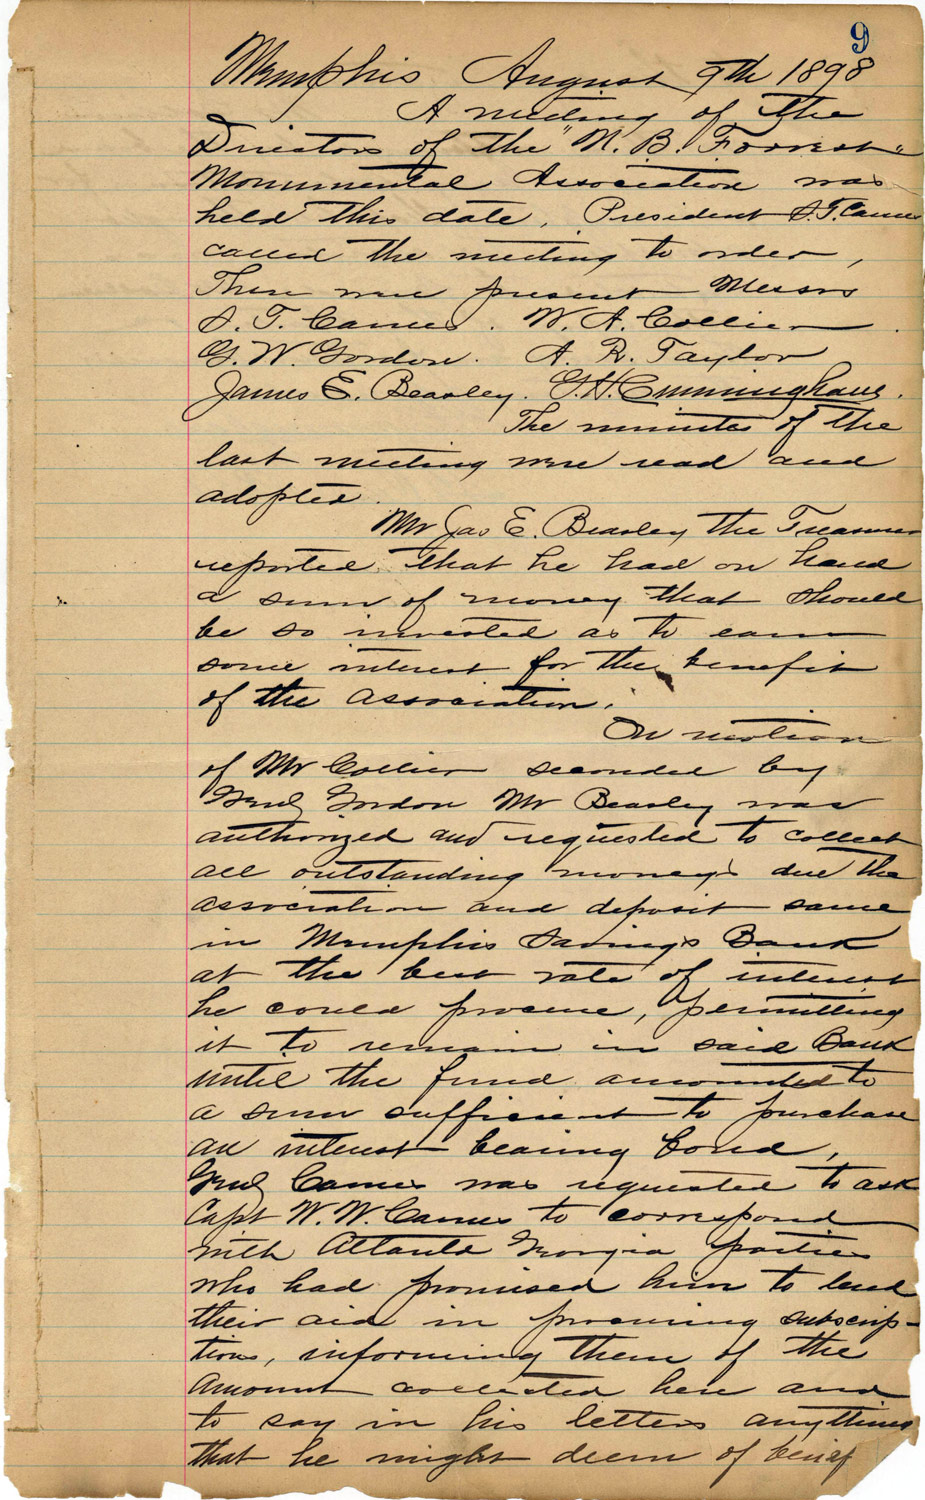 9
Memphis August 9th 1898
A meeting of the
Directors of the "N. B. Forrest"
Monumental Association was
held this date, President S. T. Carnes
called the meeting to order,
There were present Messrs
S. T. Carnes. W. A. Collier.
G. W. Gordon. A. R. Taylor
James E. Beasley. G. H. Cunningham.
The minutes of the
last meeting were read and
adopted.
Mr Jas E. Beasley the Treasurer
reported, that he had on hand
a sum of money that should
be so invested as to earn
some interest for the benefit
of the association.
On motion
of Mr Collier seconded by
Genl Gordon Mr Beasley was
authorized and requested to collect
all outstanding moneys due the
association and deposit same
in Memphis Savings Bank
at the best rate of interest
he could procure, permitting
it to remain in said Bank
until the fund amounted to
a sum sufficient to purchase
an interest bearing bond,
Genl Carnes was requested to ask
Capt W. W. Carnes to correspond
with Atlanta Georgia parties
who had promised him to lend
their aid in procuring subscrip-
tions, informing them of the
amount collected here and
to say in his letters anything
that he might deem of